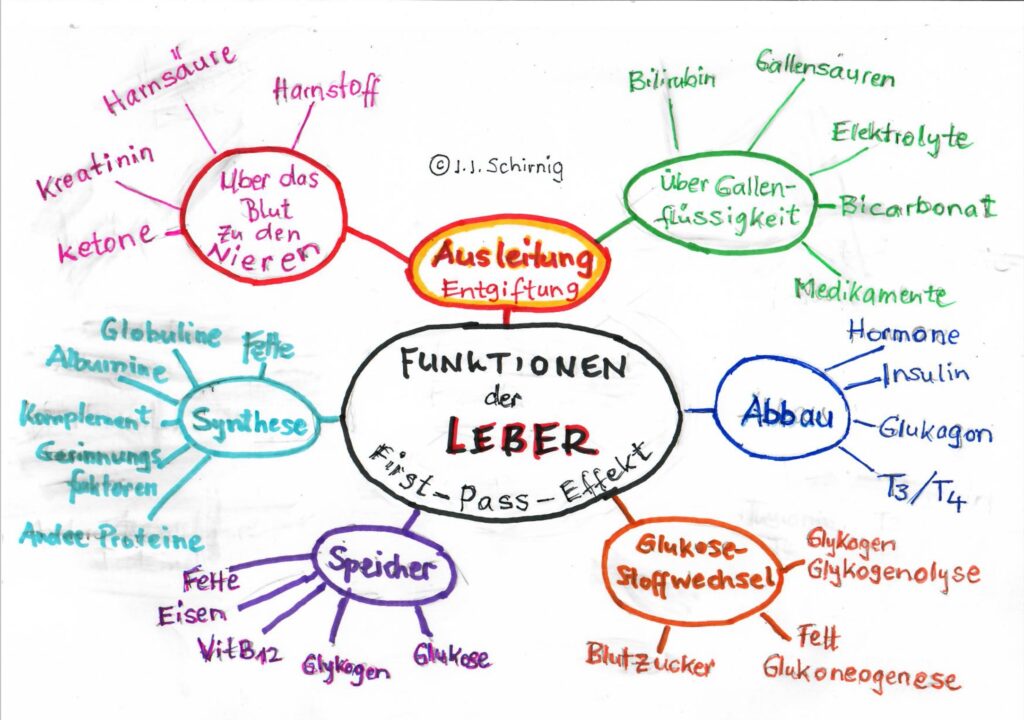 Harnsäure
Harnstoff
Kreatinin
Ketone
Über das
Blut
Zu den
Nieren
© J.J. Schirnig
Bilirubin
Gallensäuren
Elektrolyte
Bicarbonat
Medikamente
über Gallen-
flüssigkeit
Ausleitung
Entgiftung
FUNKTIONEN
der
LEBER
First-Pass-Effekt
Globuline
Fette
Albumine
Komplement
Gerinnungs
faktoren
Andee Proteine
Synthese
Abbau
Hormone
Insulin
Glukagon
T3/T4
Speicher
Fette
Eisen
VitB12
Glykogen
Glukose
Glukose-
Stoffwechsel
Glykogen
Glykogenolyse
Fett
Glukoneogenese
Blutzucker